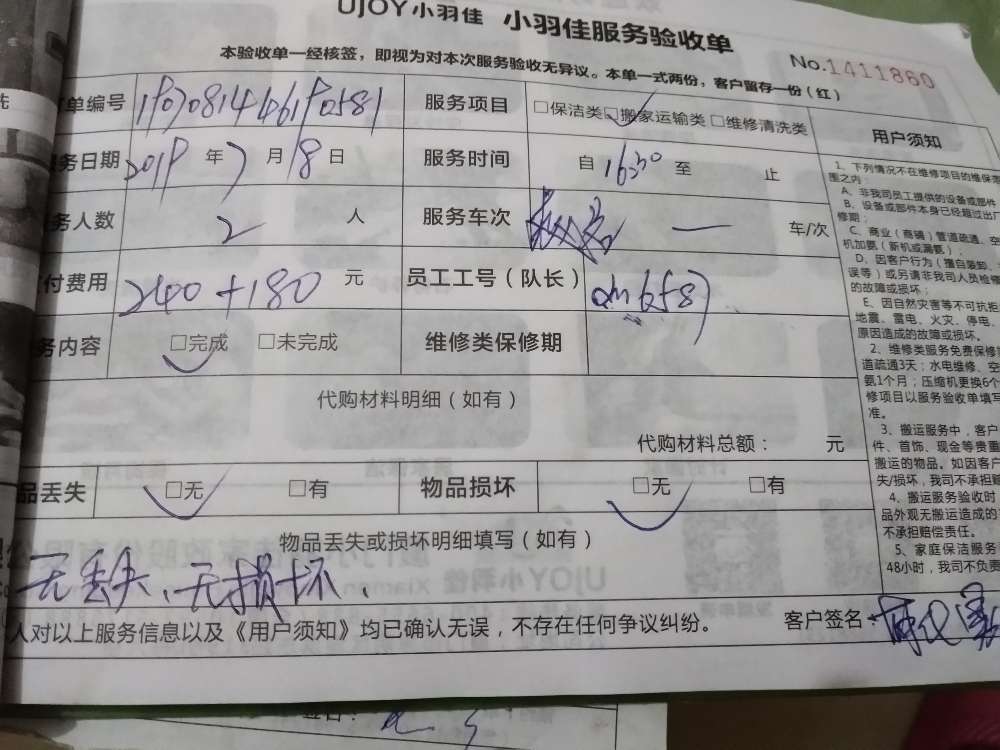 UJOY小羽佳 小羽佳服务验收单
本验收单一经核签，即视为对本次服务验收无异议。本单一式两份，客户留存一份（红）
No.1411860
单编号 服务项目 □保洁类 □搬家运输类 □维修清洗类
务日期 2019 年 7 月 18 日 服务时间 自 16:30 至 止
务人数 2 人 服务车次 一 车/次
付费用 240+180 元 员工工号（队长）
务内容 □完成 □未完成 维修类保修期
代购材料明细（如有）
代购材料总额： 元
品丢失 □无 □有 物品损坏 □无 □有
物品丢失或损坏明细填写（如有）
无丢失、无损坏.
人对以上服务信息以及《用户须知》均已确认无误，不存在任何争议纠纷。 客户签名：
用户须知
1、下列情况不在维修项目的维保
围之内
A、非我司员工提供的设备或部件
B、设备或部件本身已经超过出
修期；
C、商业（商铺）管道疏通、空
机加氨（新机或漏氨）；
D、因客户行为（擅自装卸、
误等）或另请非我司人员检修
的故障或损坏；
E、因自然灾害等不可抗拒
地震、雷电、火灾、停电、
原因造成的故障或损坏。
2、维修类服务免费保修
道疏通3天；水电维修、空
氨1个月；压缩机更换6个
修项目以服务验收单填写
准。
3、搬运服务中，客户
件、首饰、现金等贵重
搬运的物品。如因客户
失/损坏，我司不承担赔
4、搬运服务验收时
品外观无搬运造成的
不承担赔偿责任。
5、家庭保洁服务
48小时，我司不负责